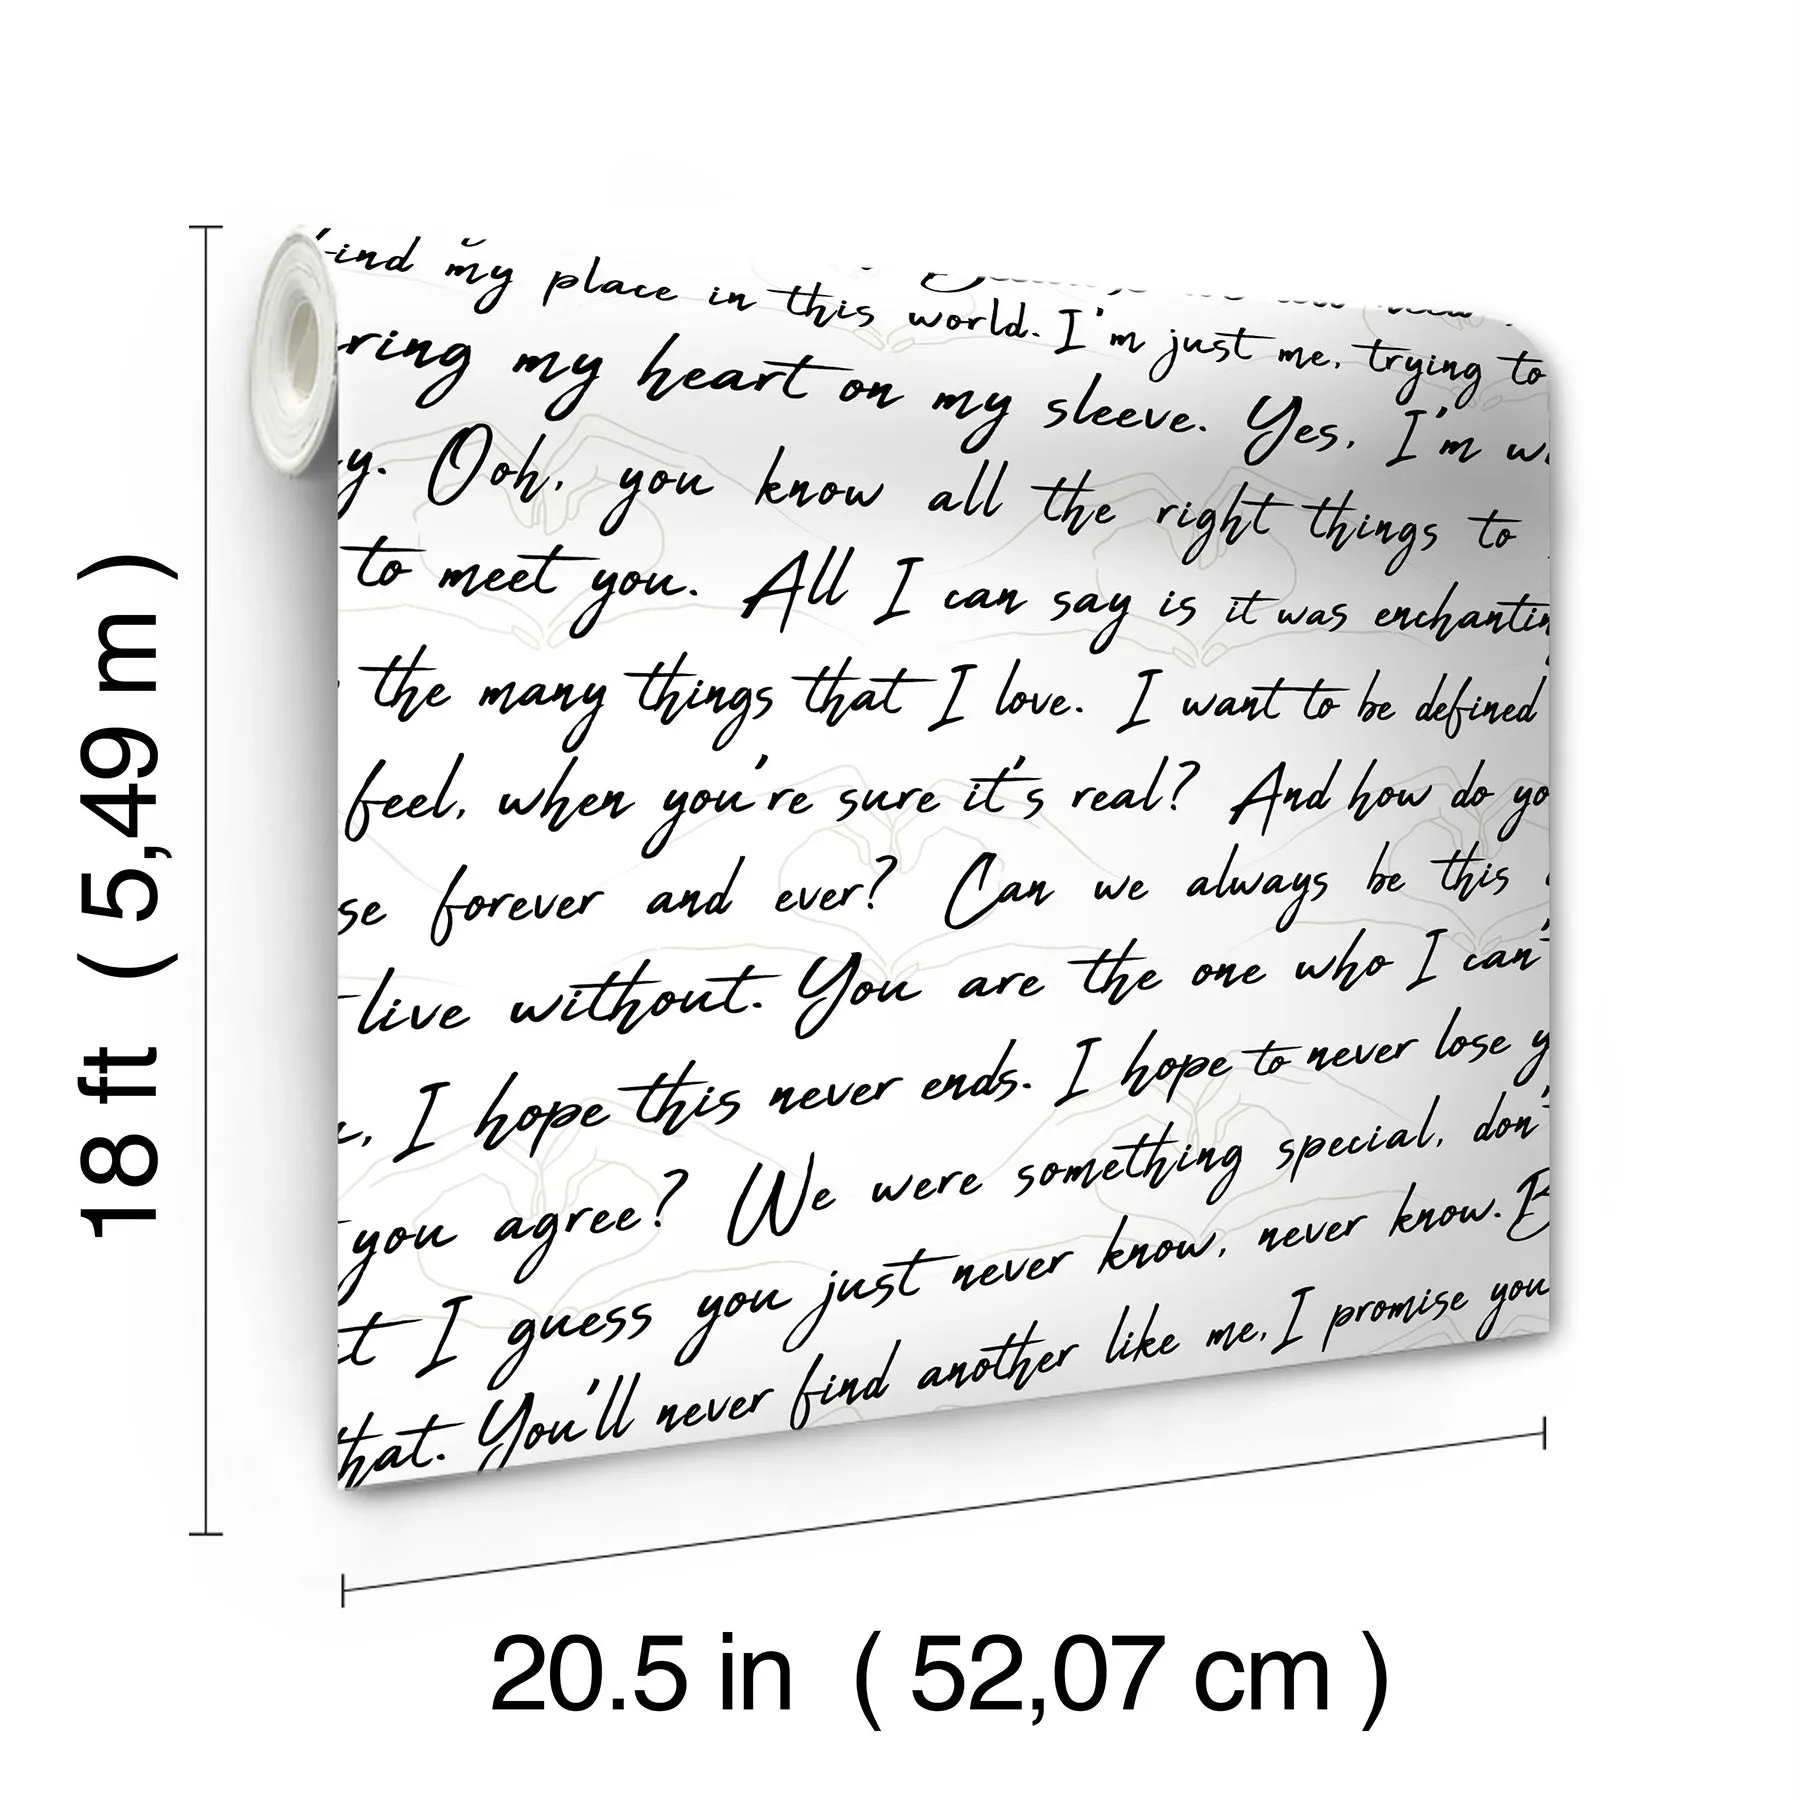 my place in this world. I'm just me, trying to
my heart on my sleeve. Yes, I'm
y. Ooh, you know all the right things to
to meet you. All I can say is it was enchantin
the many things that I love. I want to be defined
feel, when you're sure it's real? And how do yo
se forever and ever? Can we always be this
live without. You are the one who I can'
, I hope this never ends. I hope to never lose y
you agree? We were something special, don'
t I guess you just never know, never know. B
hat. You'll never find another like me, I promise you
18 ft ( 5,49 m )
20.5 in ( 52,07 cm )